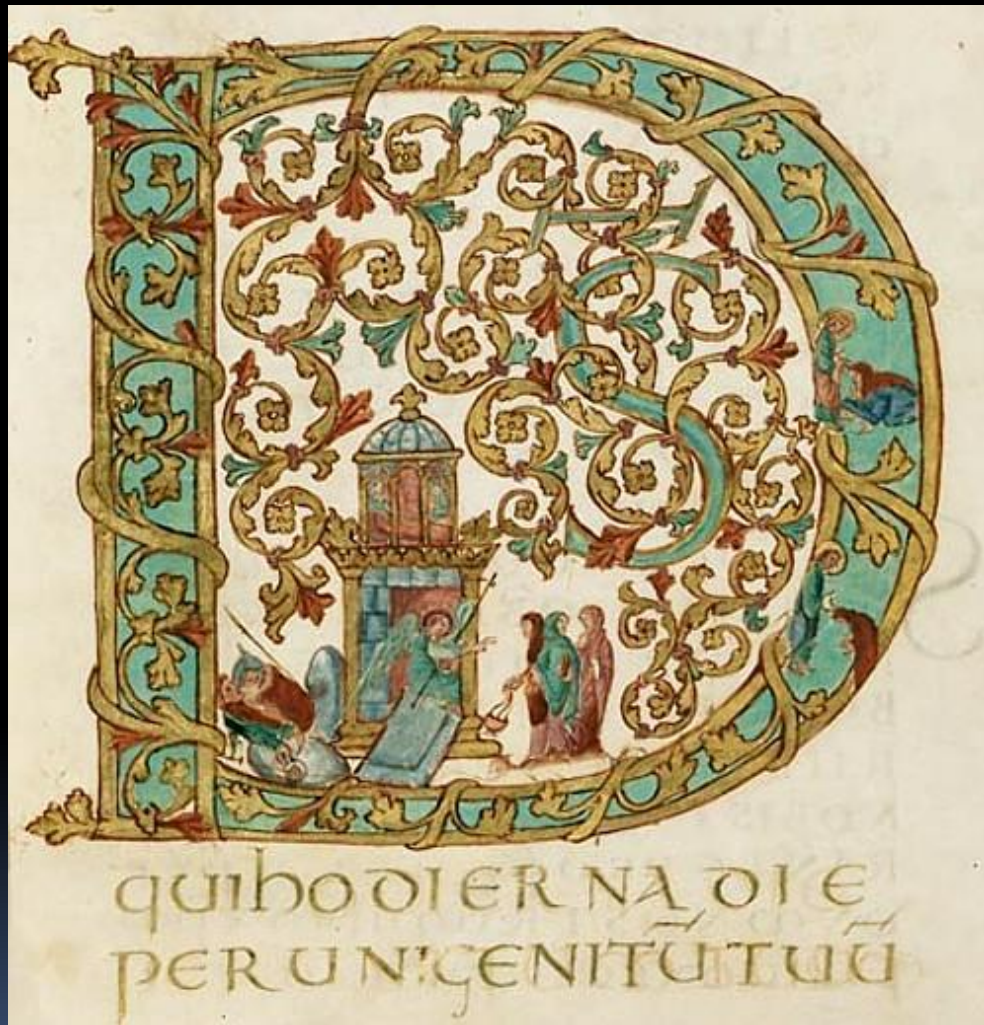 DS̄
qui hodIERNA DIE
PER UNIGENITŪ TUŪ